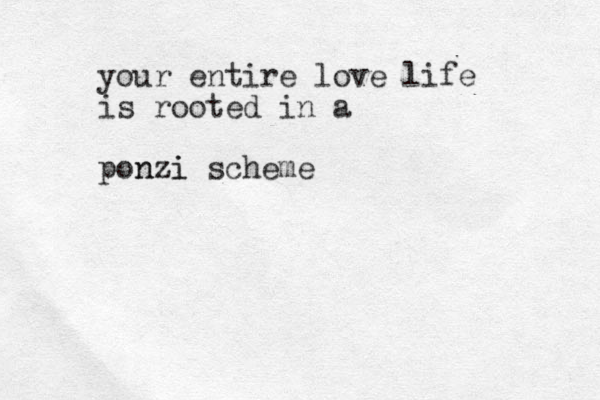 your entire love life
is rooted in a
ponzi scheme